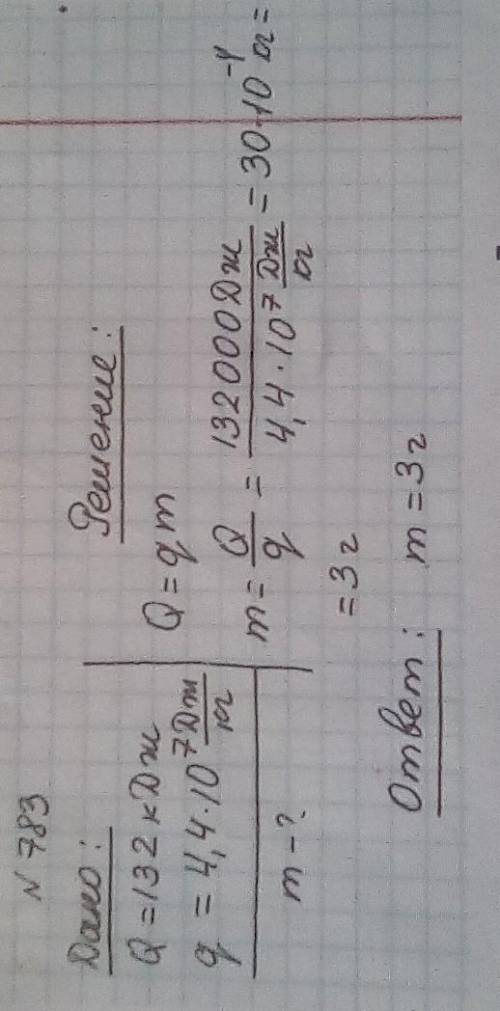 N 783
Дано:
Q = 132 кДж
q = 4,4 · 10⁷ Дж/кг
m - ?
Решение:
Q = qm
m = Q/q = 132000Дж / 4,4 · 10⁷ Дж/кг = 30 · 10⁻⁴ кг =
= 3г
Ответ: m = 3г